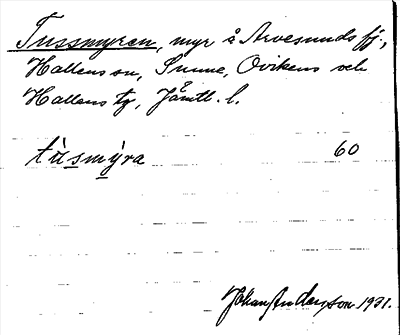 Tussmyren, myr å Arvesunds fj.,
Hallens sn, Sunne, Ovikens och
Hallens tg, Jämtl. l.
tùsmýra 60
Johan Anderson 1931.